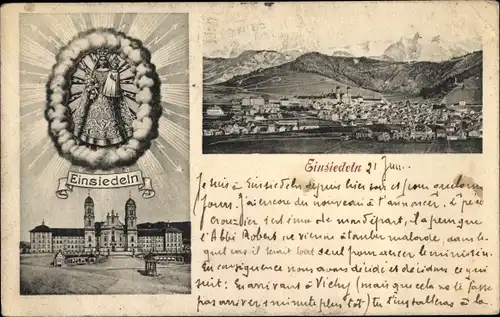 Einsiedeln
Einsiedeln 21 Juin.
Je suis à Einsiedeln depuis hier soir et pour quelques
jours. J'ai encore du nouveau à t'annoncer.
est venu de ma part, la peur que
l'Abbé Robert, ne vienne à tomber malade, dans le
quel cas il serait tout seul pour exercer le ministère.
En conséquence nous avons décidé et décidons ce qui
suit: En arrivant à Vichy (mais que cela ne te fasse
pas arriver 1 minute plus tôt) tu t'installeras à la